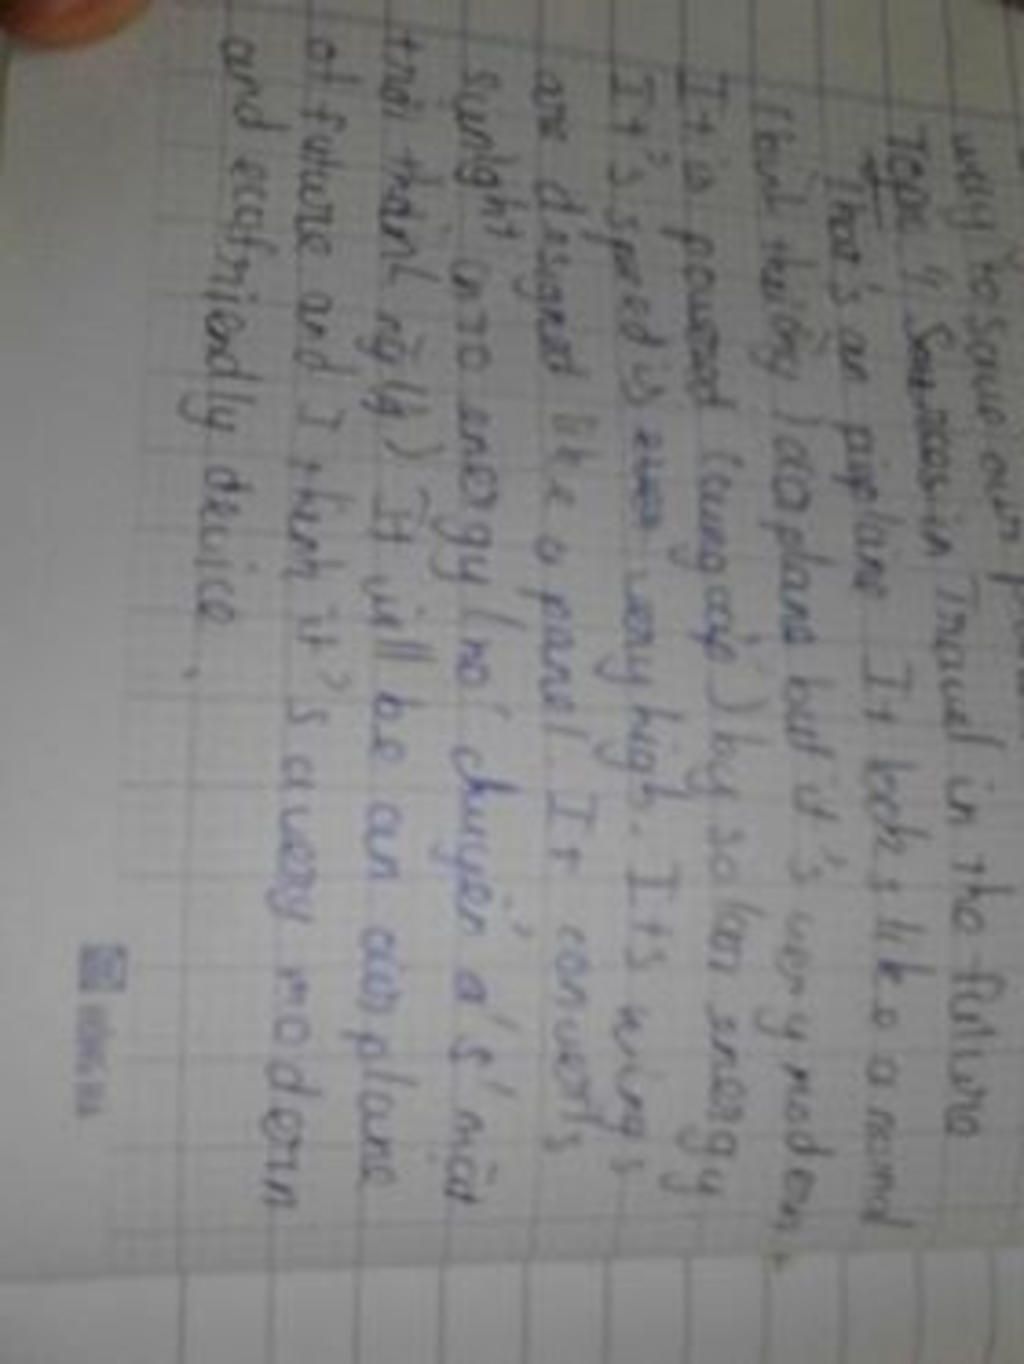 way to save our
Topic 4 in Travel in the future
That's an airplane It looks like a normal
(bình thường) airplane but it's very modern.
It is powered (cung cấp) by solar energy
It's speed is very high. Its wings
are designed like a panel. It converts
Sunlight into energy (nó chuyển a's' mặt
trời thành It will be an airplane
of future and I think it's a very modern
and ecofriendly device.